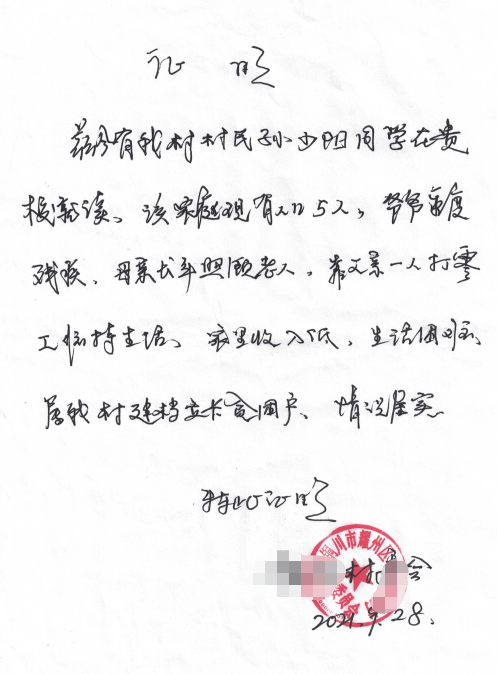 证 明
兹有我村村民孙少阳同学在贵
校就读。该家庭现有人口5人,爷爷重度
残疾、母亲长年照顾老人,靠父亲一人打零
工维持生活、家里收入低,生活困难,
属我村建档立卡贫困户、情况属实
特此证明
川市耀州区
村 会
委员会
2021.9.28.